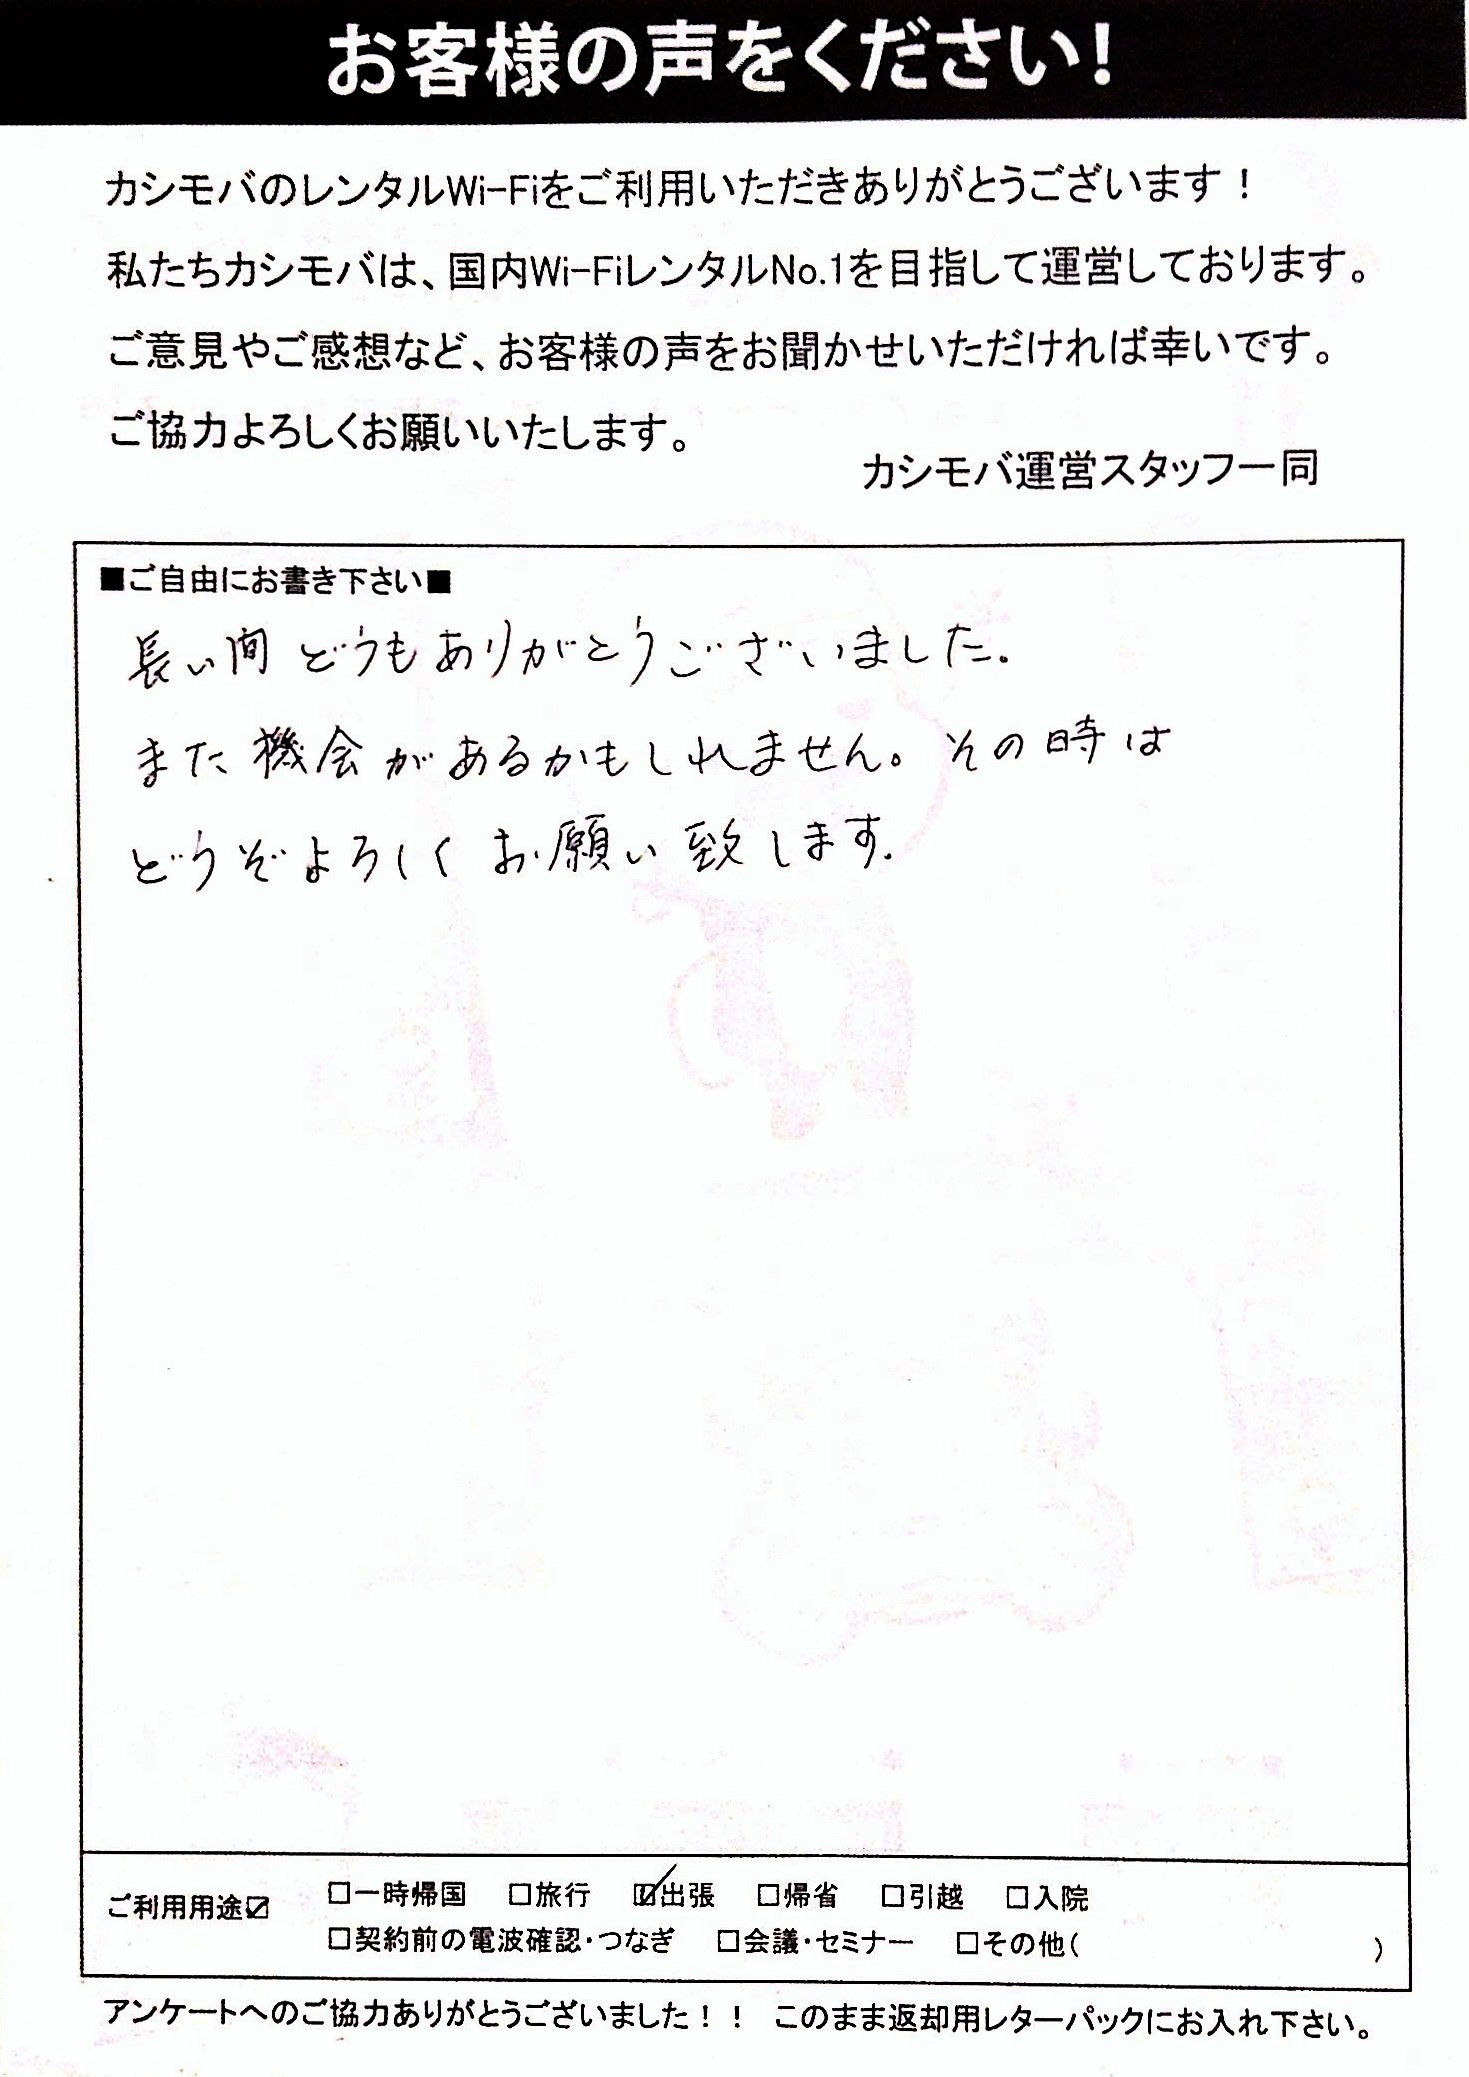 お客様の声をください!
カシモバのレンタルWi-Fiをご利用いただきありがとうございます！
私たちカシモバは、国内Wi-FiレンタルNo.1を目指して運営しております。
ご意見やご感想など、お客様の声をお聞かせいただければ幸いです。
ご協力よろしくお願いいたします。
カシモバ運営スタッフ一同
■ご自由にお書き下さい■
長い間 どうもありがとうございました.
また機会があるかもしれません。その時は
どうぞよろしく お願い致します.
ご利用用途☑ □一時帰国 □旅行 ☑出張 □帰省 □引越 □入院
□契約前の電波確認・つなぎ □会議・セミナー □その他( )
アンケートへのご協力ありがとうございました！！ このまま返却用レターパックにお入れ下さい。